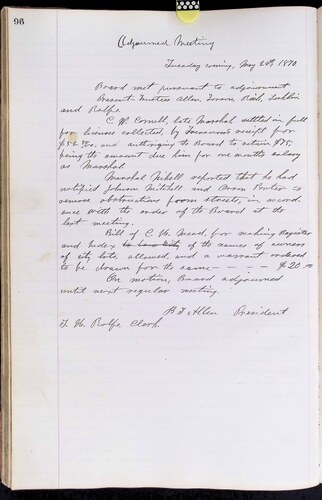 96
Adjourned Meeting
Tuesday evening, May 24th, 1870
Board met pursuant to adjournment
Present Trustees Allen, Rich,
and Rolfe.
C. W. Cornell, late Marshal settled in full
for licenses collected, by Treasurer's receipt for
and authorizing the Board to retain $75,
being the amount due him for one months salary
as Marshal
Marshal reported that he had
notified Johnson Mitchell and Porter to
remove obstructions from streets, in accord-
ance with the order of the Board at its
last meeting.
Bill of C. W. Mead, for making Register
and Index of the names of owners
of city lots, allowed, and a warrant ordered
to be drawn for the same - - - - $20.00
On motion, Board adjourned
until next regular meeting.
B F Allen President
F. H. Rolfe Clerk